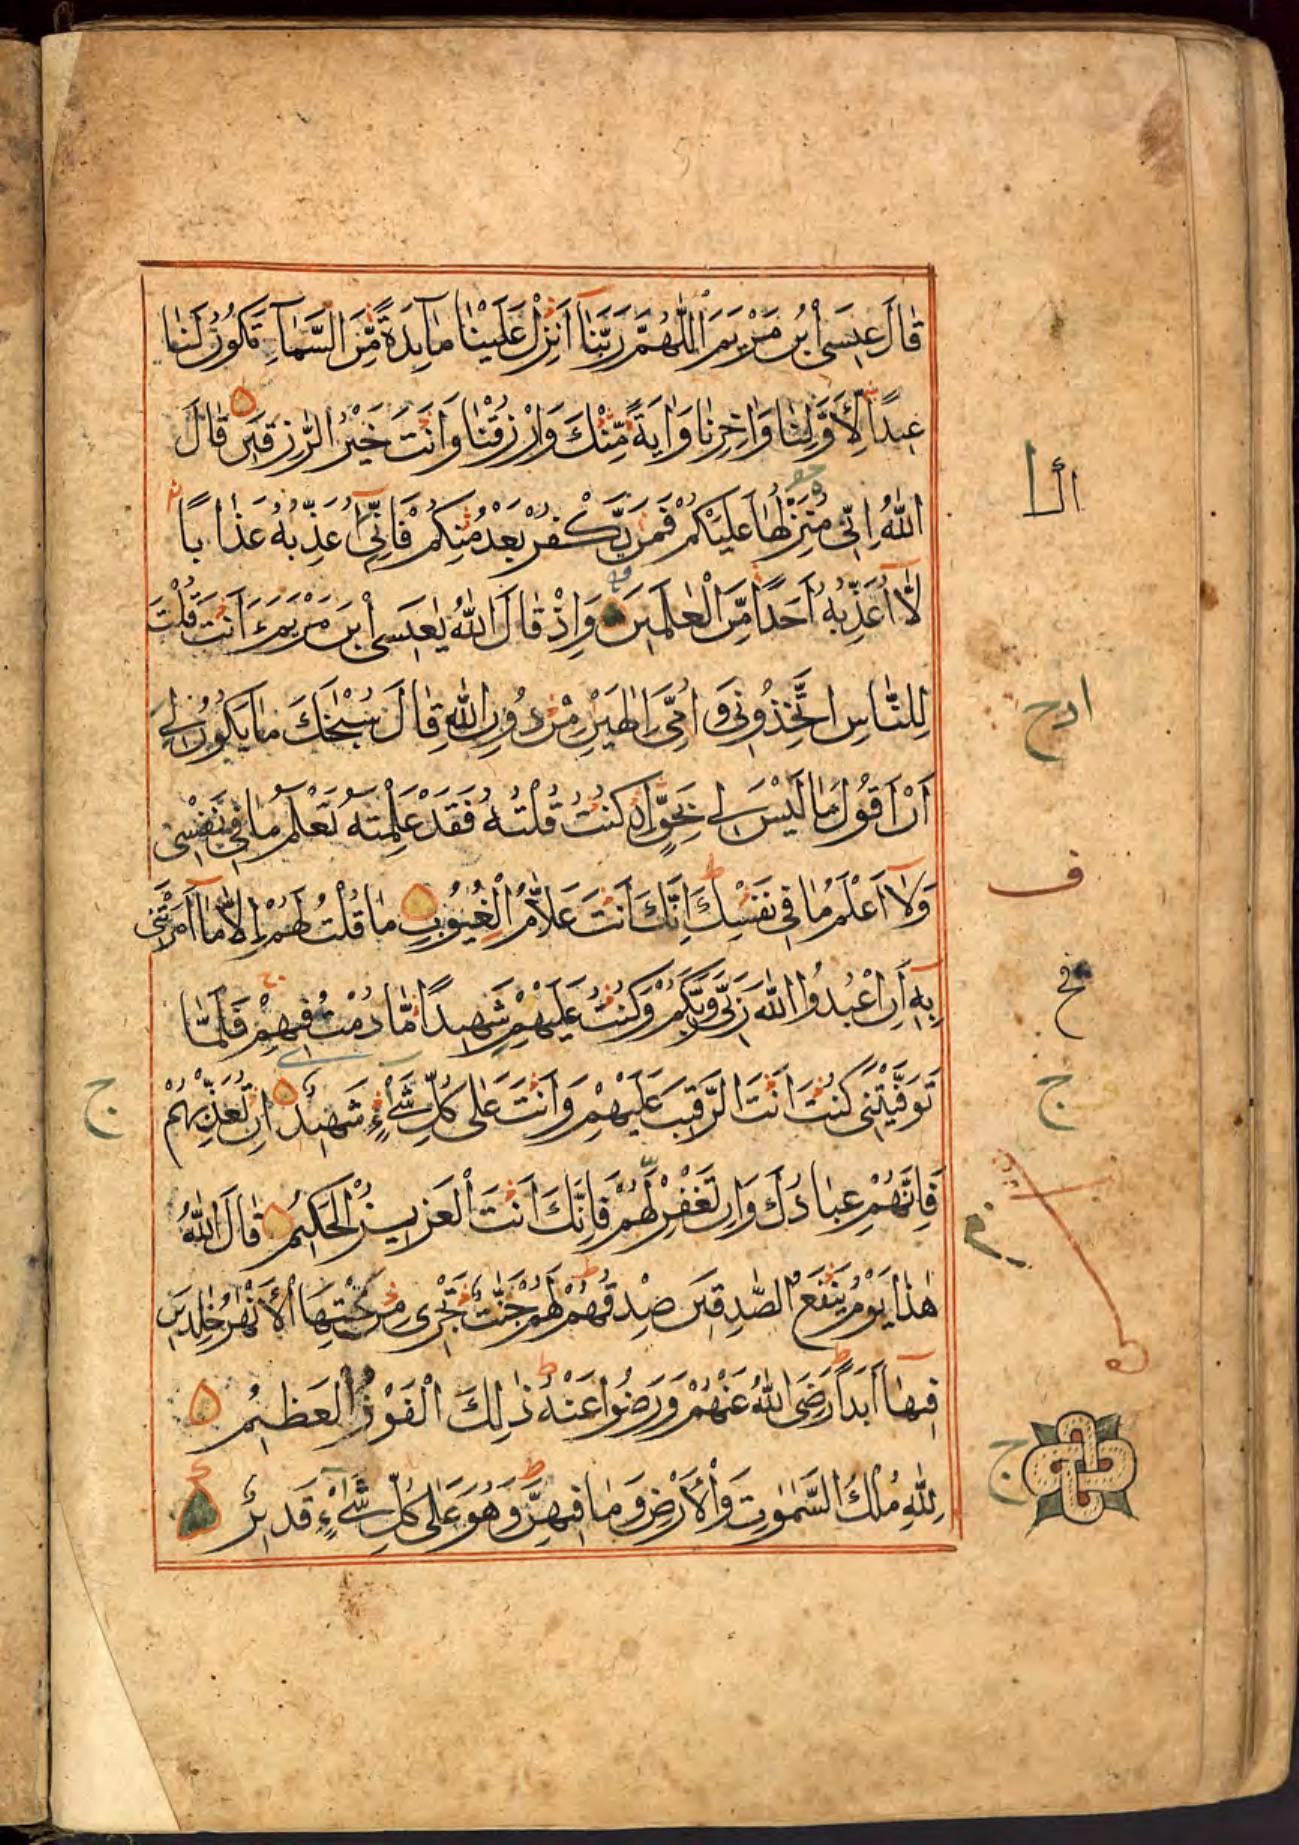 قَالَ عِيسَى ابْنُ مَرْيَمَ اللّٰهُمَّ رَبَّنَا أَنْزِلْ عَلَيْنَا مَآئِدَةً مِّنَ السَّمَآءِ تَكُونُ لَنَا
عِيدًا لِّأَوَّلِنَا وَاٰخِرِنَا وَاٰيَةً مِّنْكَ وَارْزُقْنَا وَاَنْتَ خَيْرُ الرّٰزِقِينَ قَالَ
اللّٰهُ اِنِّي مُنَزِّلُهَا عَلَيْكُمْ فَمَنْ يَّكْفُرْ بَعْدُ مِنْكُمْ فَاِنِّيٓ اُعَذِّبُهُ عَذَابًا
لَّآ اُعَذِّبُهُ اَحَدًا مِّنَ الْعٰلَمِينَ وَاِذْ قَالَ اللّٰهُ يٰعِيسَى ابْنَ مَرْيَمَ ءَاَنْتَ قُلْتَ
لِلنَّاسِ اتَّخِذُونِي وَاُمِّيَ اِلٰهَيْنِ مِنْ دُونِ اللّٰهِ قَالَ سُبْحٰنَكَ مَا يَكُونُ لِي
اَنْ اَقُولَ مَا لَيْسَ لِي بِحَقٍّ اِنْ كُنْتُ قُلْتُهُ فَقَدْ عَلِمْتَهُ تَعْلَمُ مَا فِي نَفْسِي
وَلَآ اَعْلَمُ مَا فِي نَفْسِكَ اِنَّكَ اَنْتَ عَلَّامُ الْغُيُوبِ مَا قُلْتُ لَهُمْ اِلَّا مَآ اَمَرْتَنِي
بِهٓ اَنِ اعْبُدُوا اللّٰهَ رَبِّي وَرَبَّكُمْ وَكُنْتُ عَلَيْهِمْ شَهِيدًا مَّا دُمْتُ فِيهِمْ فَلَمَّا
تَوَفَّيْتَنِي كُنْتَ اَنْتَ الرَّقِيبَ عَلَيْهِمْ وَاَنْتَ عَلٰى كُلِّ شَيْءٍ شَهِيدٌ اِنْ تُعَذِّبْهُمْ
فَاِنَّهُمْ عِبَادُكَ وَاِنْ تَغْفِرْ لَهُمْ فَاِنَّكَ اَنْتَ الْعَزِيزُ الْحَكِيمُ قَالَ اللّٰهُ
هٰذَا يَوْمُ يَنْفَعُ الصّٰدِقِينَ صِدْقُهُمْ لَهُمْ جَنّٰتٌ تَجْرِي مِنْ تَحْتِهَا الْاَنْهٰرُ خٰلِدِينَ
فِيهَآ اَبَدًا رَضِيَ اللّٰهُ عَنْهُمْ وَرَضُوا عَنْهُ ذٰلِكَ الْفَوْزُ الْعَظِيمُ
لِلّٰهِ مُلْكُ السَّمٰوٰتِ وَالْاَرْضِ وَمَا فِيهِنَّ وَهُوَ عَلٰى كُلِّ شَيْءٍ قَدِيرٌ
ف
ج
ج
ج